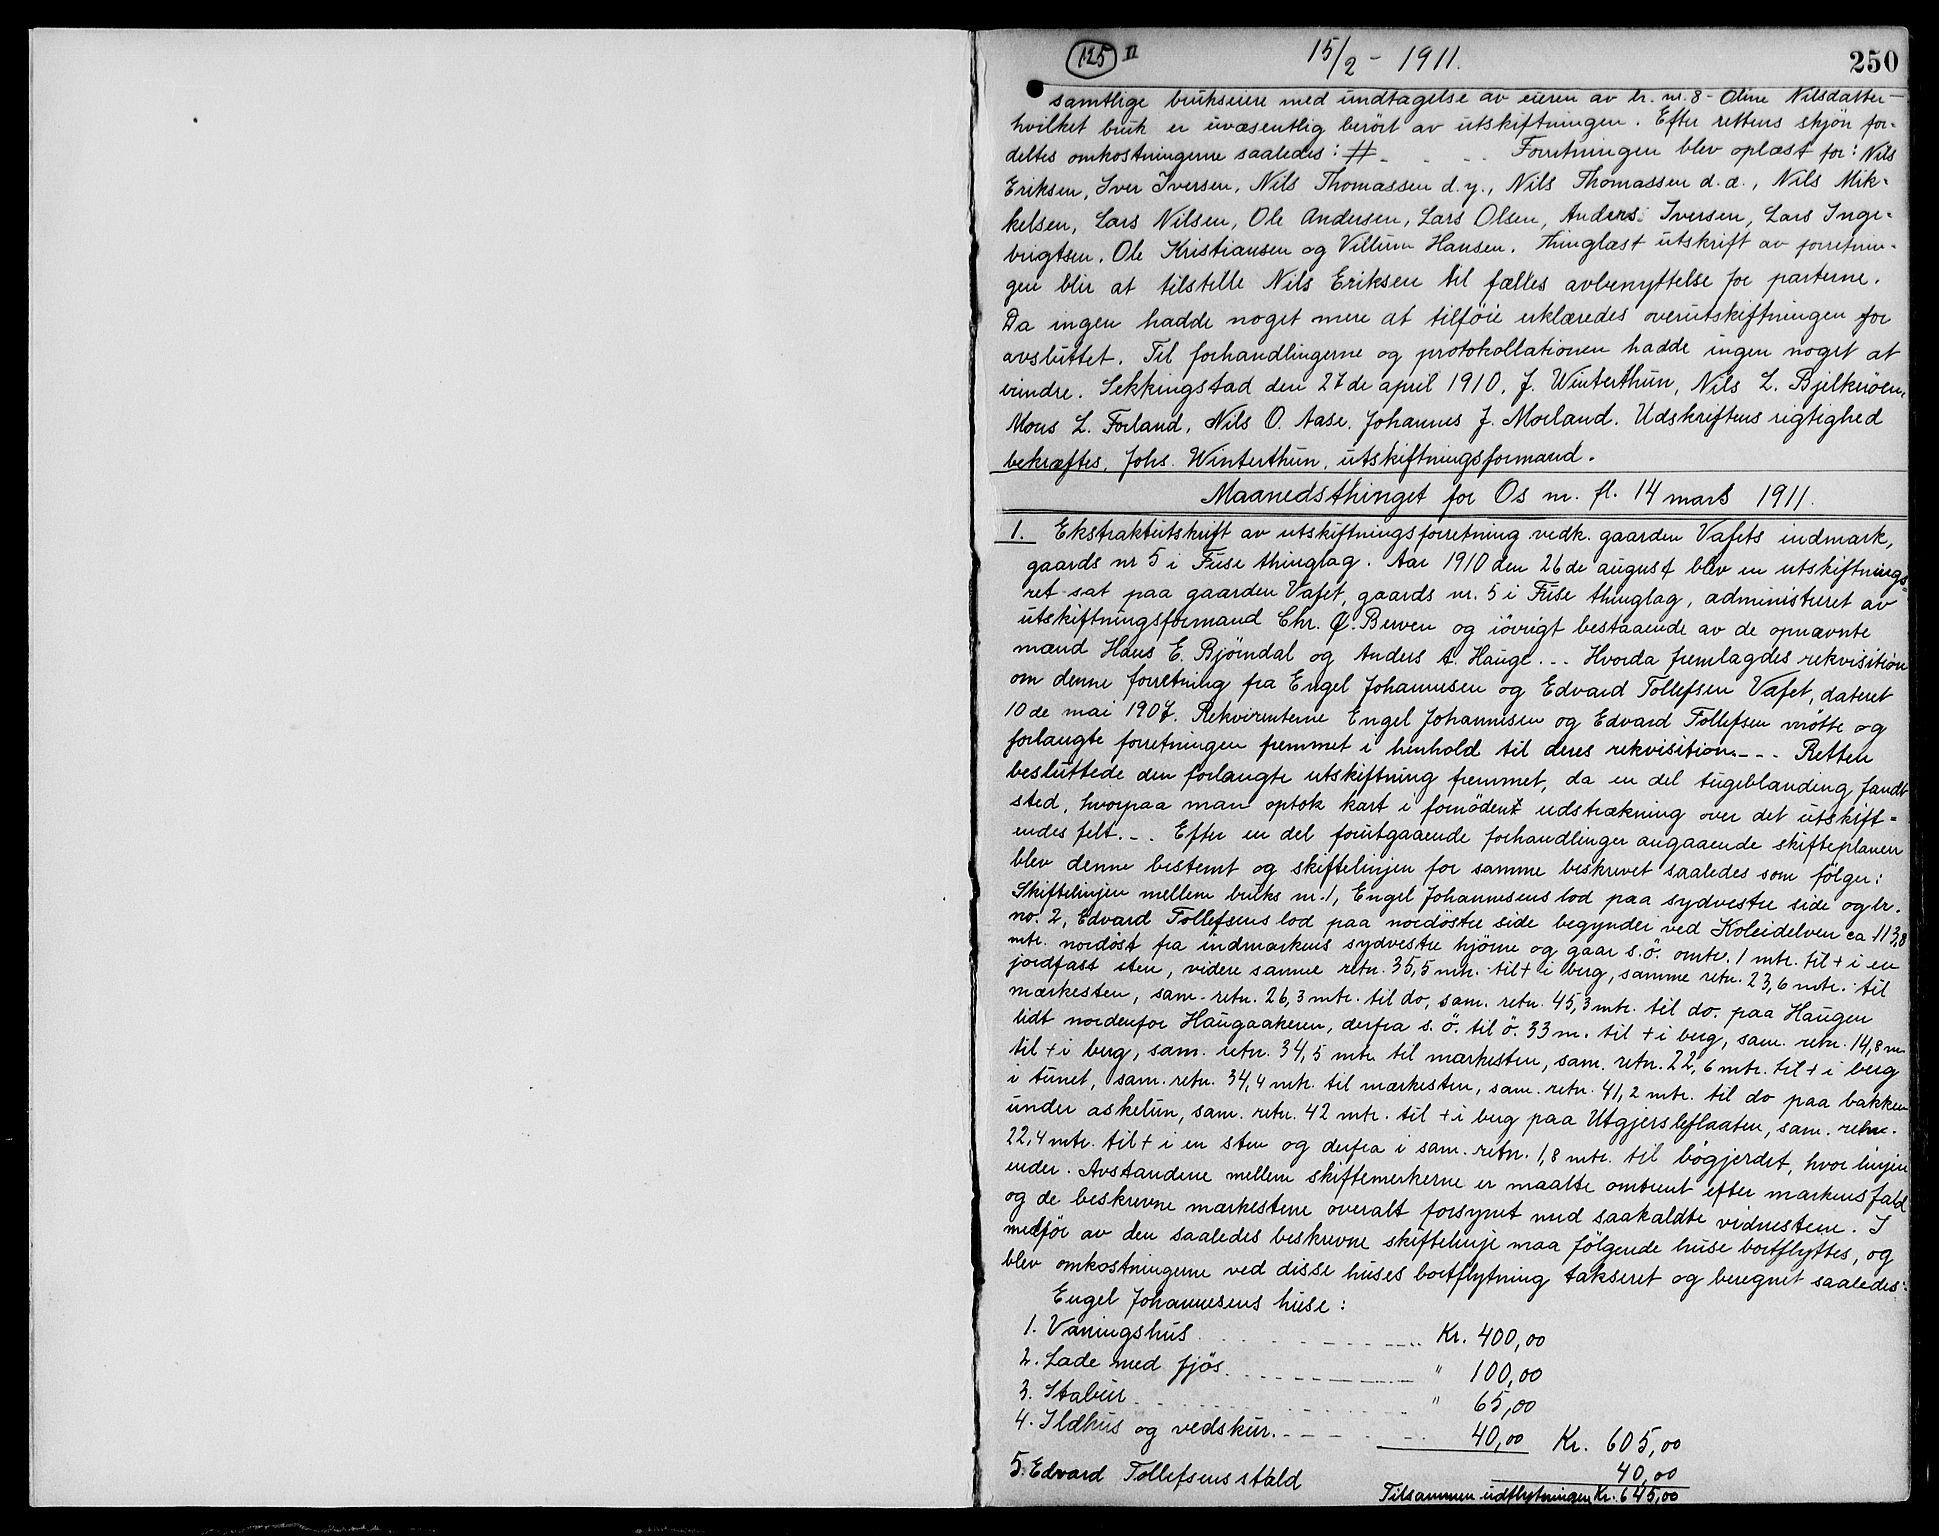 125 II 15/2 - 1911. 250
samtlige brukseiere med undtagelse av eieren av br. nr. 8 - Oline Nilsdatter -
hvilket bruk er uvæsentlig berört av utskiftningen. Efter rettens skjön for-
deltes omkostningerne saaledes: # - - - - Forretningen blev oplæst for: Nils
Eriksen, Iver Iversen, Nils Thomassen d.y., Nils Thomassen d.æ., Nils Mik-
kelsen, Lars Nilsen, Ole Andersen, Lars Olsen, Anders Iversen, Lars Inge-
brigtsen, Ole Kristiansen og Villum Hansen. Thinglæst utskrift av forretnin-
gen blir at tilstille Nils Eriksen til fælles avbenyttelse for parterne.
Da ingen hadde noget mere at tilföie erklæredes overutskiftningen for
avsluttet. Til forhandlingerne og protokollationen hadde ingen noget at
erindre. Sekkingstad den 27de april 1910. J. Winterthun, Nils L. Bjelkeröen,
Mons L. Forland, Nils O. Aase, Johannes J. Morland. Udskriftens rigtighed
bekræftes. Johs. Winterthun, utskiftningsformand.
Maanedsthinget for Os m. fl. 14 mars 1911.
1. Ekstraktutskrift av utskiftningsforretning vedk. gaarden Vafets indmark,
gaards nr 5 i Fuse thinglag. Aar 1910 den 26de august blev en utskiftnings-
ret sat paa gaarden Vafet, gaards nr. 5 i Fuse thinglag, administreret av
utskiftningsformand Chr. Q. Berven og iövrigt bestaaende av de opnævnte
mænd Hans E. Björndal og Anders A. Hauge. - - Hvorda fremlagdes rekvisition
om denne forretning fra Engel Johannesen og Edvard Tollefsen Vafet, dateret
10de mai 1907. Rekvirenterne Engel Johannesen og Edvard Tollefsen mötte og
forlangte forretningen fremmet i henhold til deres rekvisition. - - - Retten
besluttede den forlangte utskiftning fremmet, da en del teigeblanding fandt
sted, hvorpaa man optok kart i fornöden udstrækning over det utskift-
endes felt. - - Efter en del forutgaaende forhandlinger angaaende skifteplanen
blev denne bestemt og skiftelinjen for samme beskrevet saaledes som fölger:
Skiftelinjen mellem bruks nr. 1, Engel Johannesens lod paa sydvestre side og br.
no. 2, Edvard Tollefsens lod paa nordöstre side begynder ved Koleidelven ca 113,8
mtr. nordöst fra indmarkens sydvestre hjörne og gaar s.ö. omtr. 1 mtr. til + i en
jordfast sten, videre samme retn. 35,5 mtr. til + i berg, samme retn. 23,6 mtr. til
merkesten, sam. retn. 26,3 mtr. til do, sam. retn. 45,3 mtr. til do. paa Haugen
lidt nordenfor Haugaakeren, derfra s. ö. til ö. 33 m. til + i berg, sam. retn. 14,8 m
til + i berg, sam. retn. 34,5 mtr til merkesten, sam. retn. 22,6 mtr. til + i berg
i tunet, sam. retn. 34,4 mtr. til merkesten, sam. retn. 41,2 mtr. til do paa bakken
under askelun, sam. retn. 42 mtr. til + i berg paa Utgjersleflaaten, sam. retn.
22,4 mtr. til + i en sten og derfra i sam. retn. 1,8 mtr. til bögjerdet, hvor linjen
ender. Avstandene mellem skiftemerkerne er maalte omtrent efter markens fald
og de beskrevne merkestene overalt forsynet med saakaldte vidnestene. I
medför av den saaledes beskrevne skiftelinje maa fölgende huse bortflyttes, og
blev omkostningerne ved disse huses bortflytning takseret og beregnet saaledes:
Engel Johannesens huse:
1. Vaaningshus - - - - Kr. 400,00
2. Lade med fjös - - - - " 100,00
3. Stabur - - - - " 65,00
4. Ildhus og vedskur. - - - - 40,00 Kr. 605,00
5. Edvard Tollefsens stald 40,00
Tilsammen udflytningen Kr. 645,00